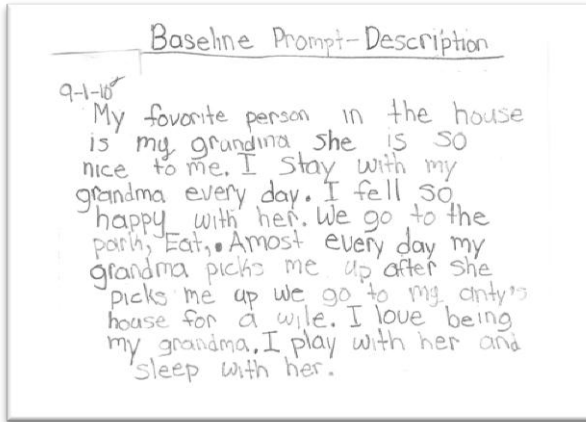 Baseline Prompt-Description
9-1-10
My fovorite person in the house
is my grandma she is so
nice to me. I stay with my
grandma every day. I fell so
happy with her. We go to the
park, Eat,. Amost every day my
grandma picks me up after she
picks me up we go to my anty's
house for a wile. I love being
my grandma. I play with her and
sleep with her.